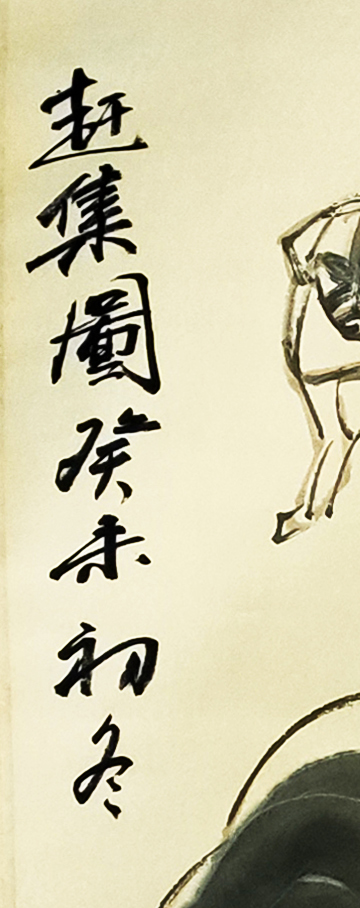 赶集圖癸未初冬